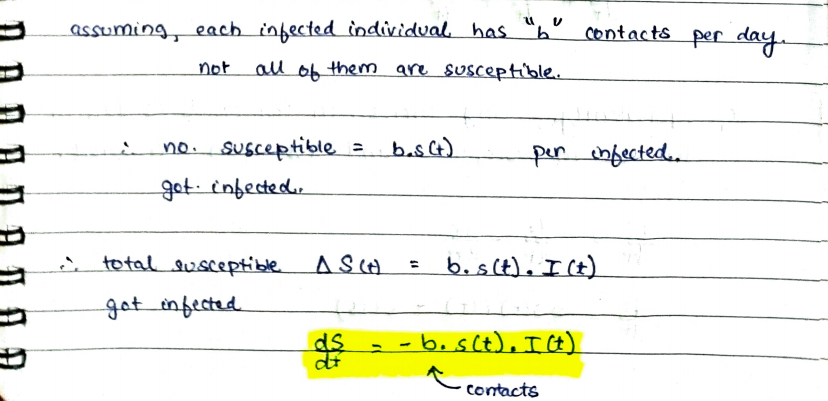 assuming, each infected individual has "b" contacts per day.
not all of them are susceptible.
∴ no. susceptible = b.s(t) per infected.
got infected.
∴ total susceptible Δ S(t) = b.s(t).I(t)
got infected
dS/dt = - b.s(t).I(t)
contacts